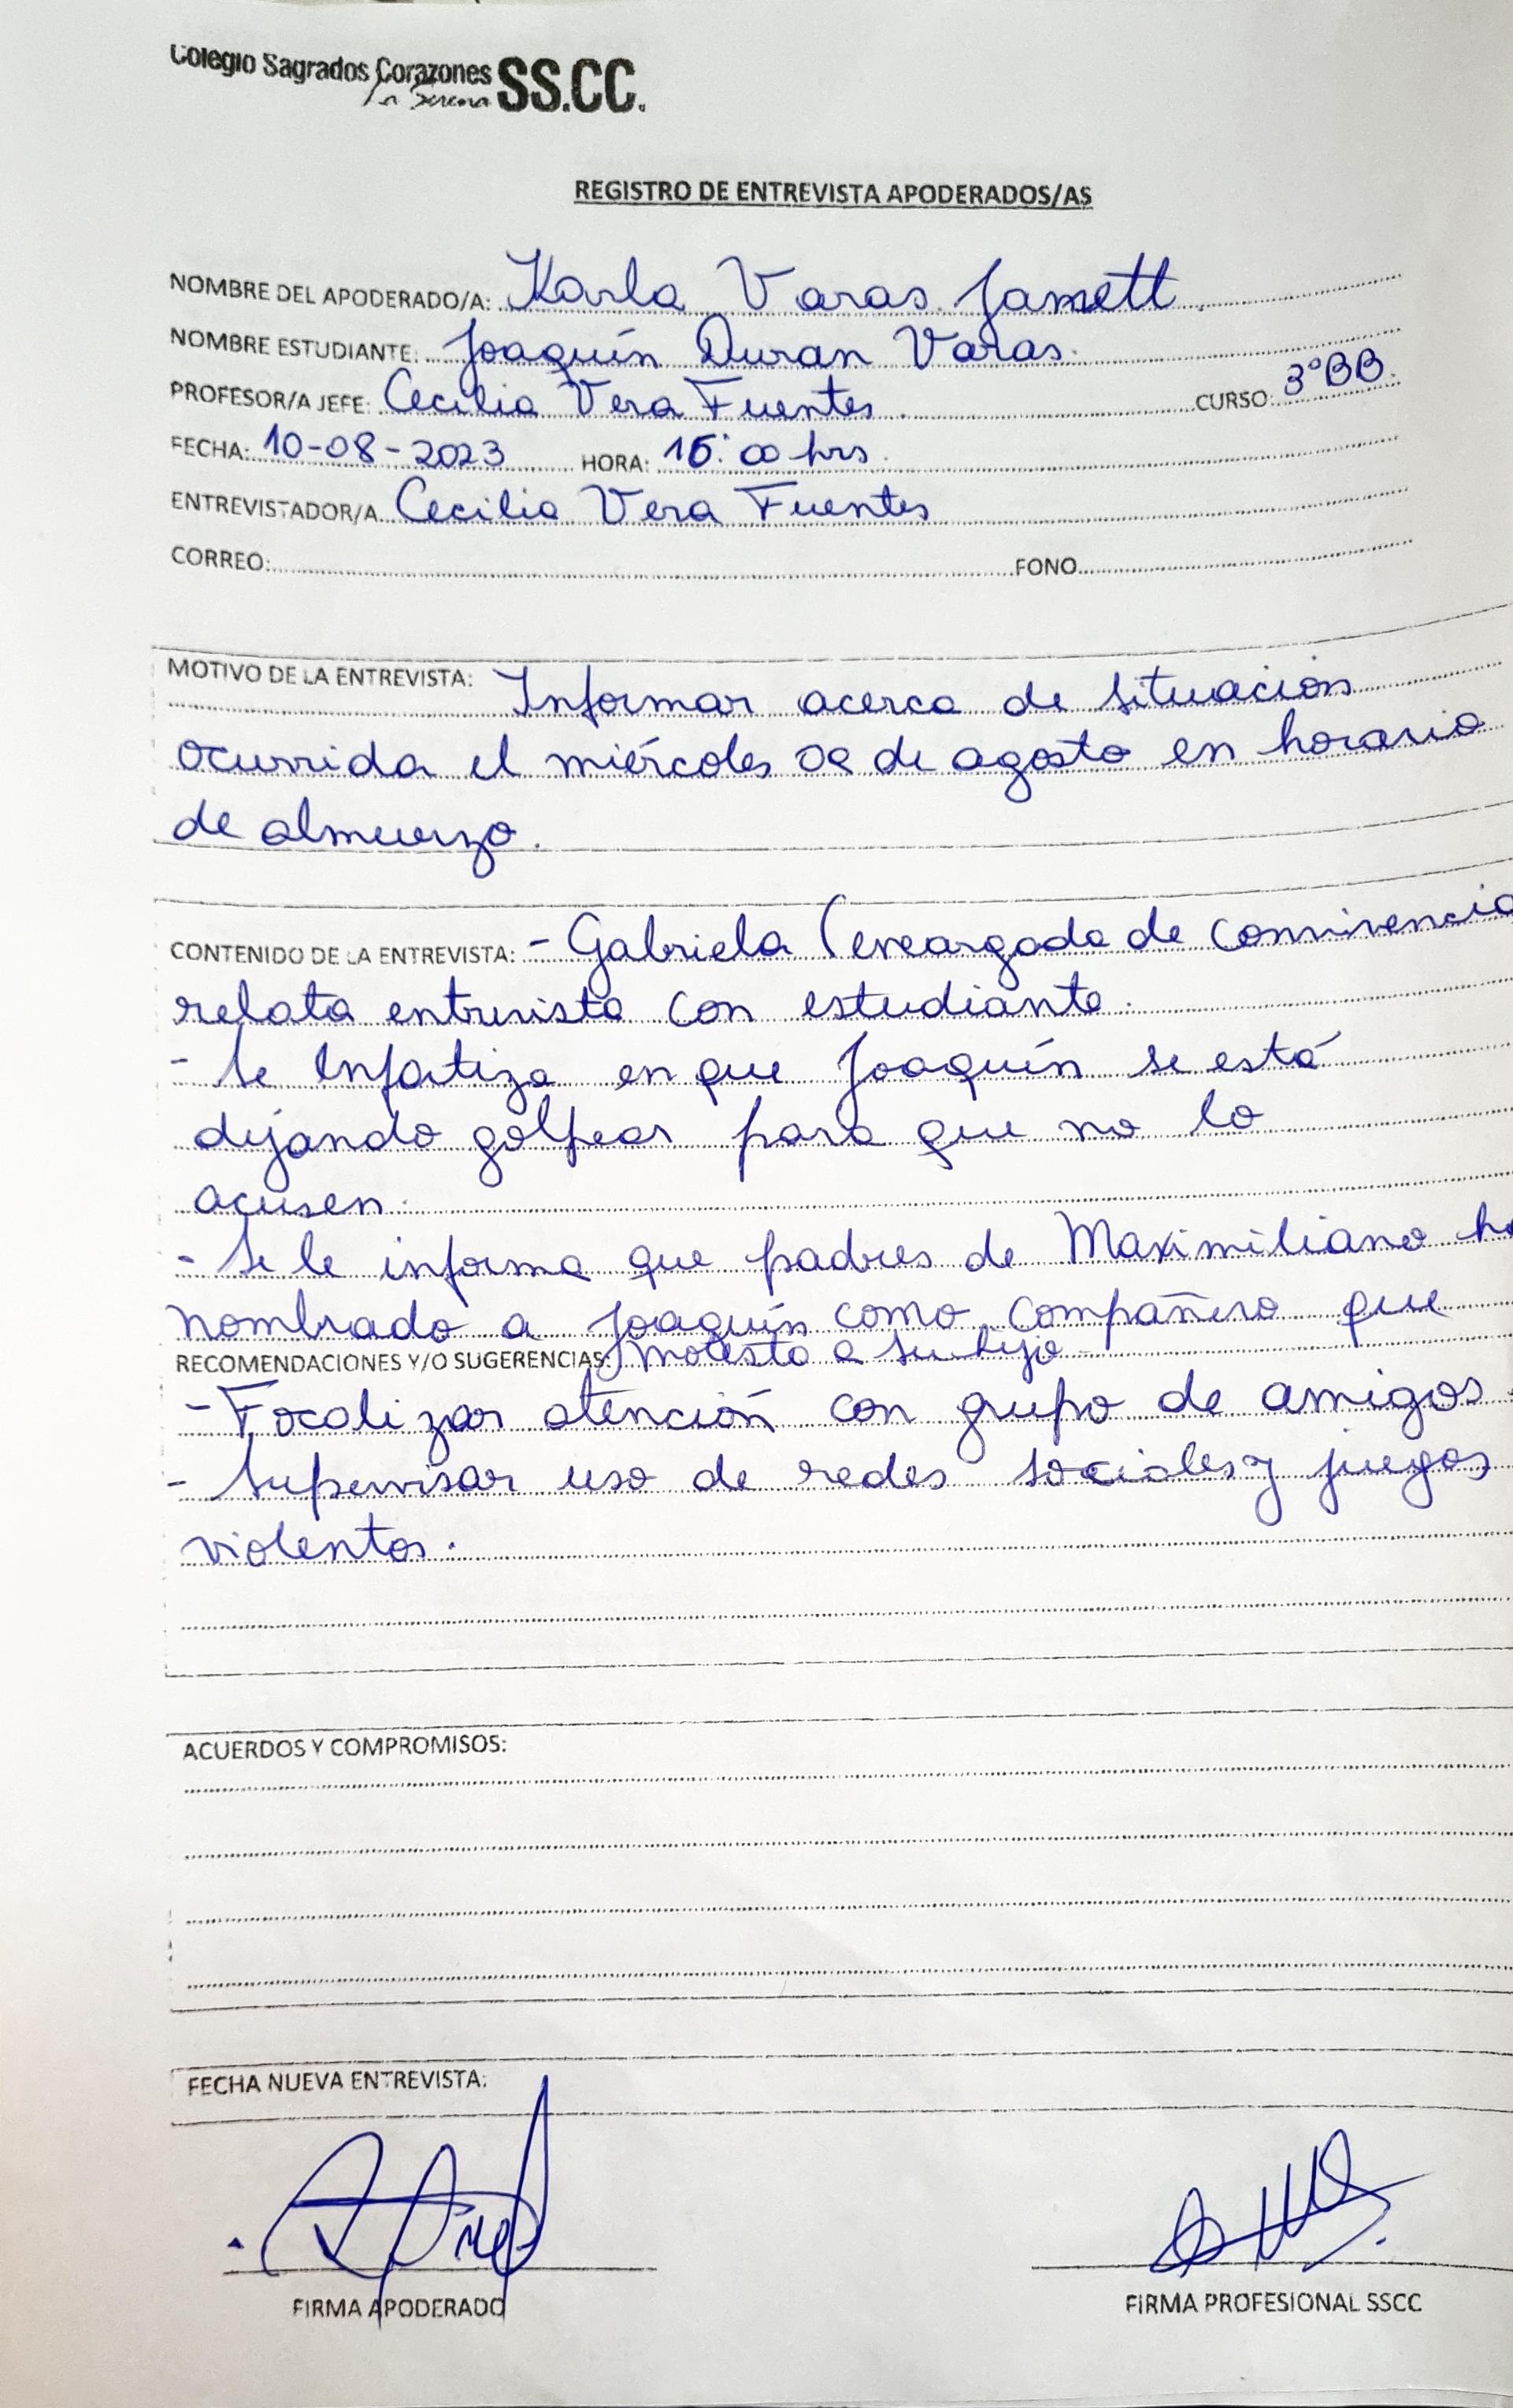 Colegio Sagrados Corazones SS.CC.
La Serena
REGISTRO DE ENTREVISTA APODERADOS/AS
NOMBRE DEL APODERADO/A: Karla Varas Jamett
NOMBRE ESTUDIANTE: Joaquín Duran Varas.
PROFESOR/A JEFE: Cecilia Vera Fuentes. CURSO: 3°BB.
FECHA: 10-08-2023 HORA: :00 hrs.
ENTREVISTADOR/A Cecilia Vera Fuentes
CORREO: FONO
MOTIVO DE LA ENTREVISTA: Informar acerca de situación
ocurrida el miércoles de agosto en horario
de almuerzo.
CONTENIDO DE LA ENTREVISTA: - Gabriela (encargada de convivencia
relata entrevista con estudiante.
- Se enfatiza en que Joaquín se está
dejando golpear para que no lo
acusen.
- Se le informa que padres de Maximiliano ha
nombrado a Joaquín como compañero que
RECOMENDACIONES Y/O SUGERENCIAS: molesta a su hijo
- Focalizar atención con grupo de amigos.
- Supervisar uso de redes sociales y juegos
violentos.
ACUERDOS Y COMPROMISOS:
FECHA NUEVA ENTREVISTA:
FIRMA APODERADO FIRMA PROFESIONAL SSCC